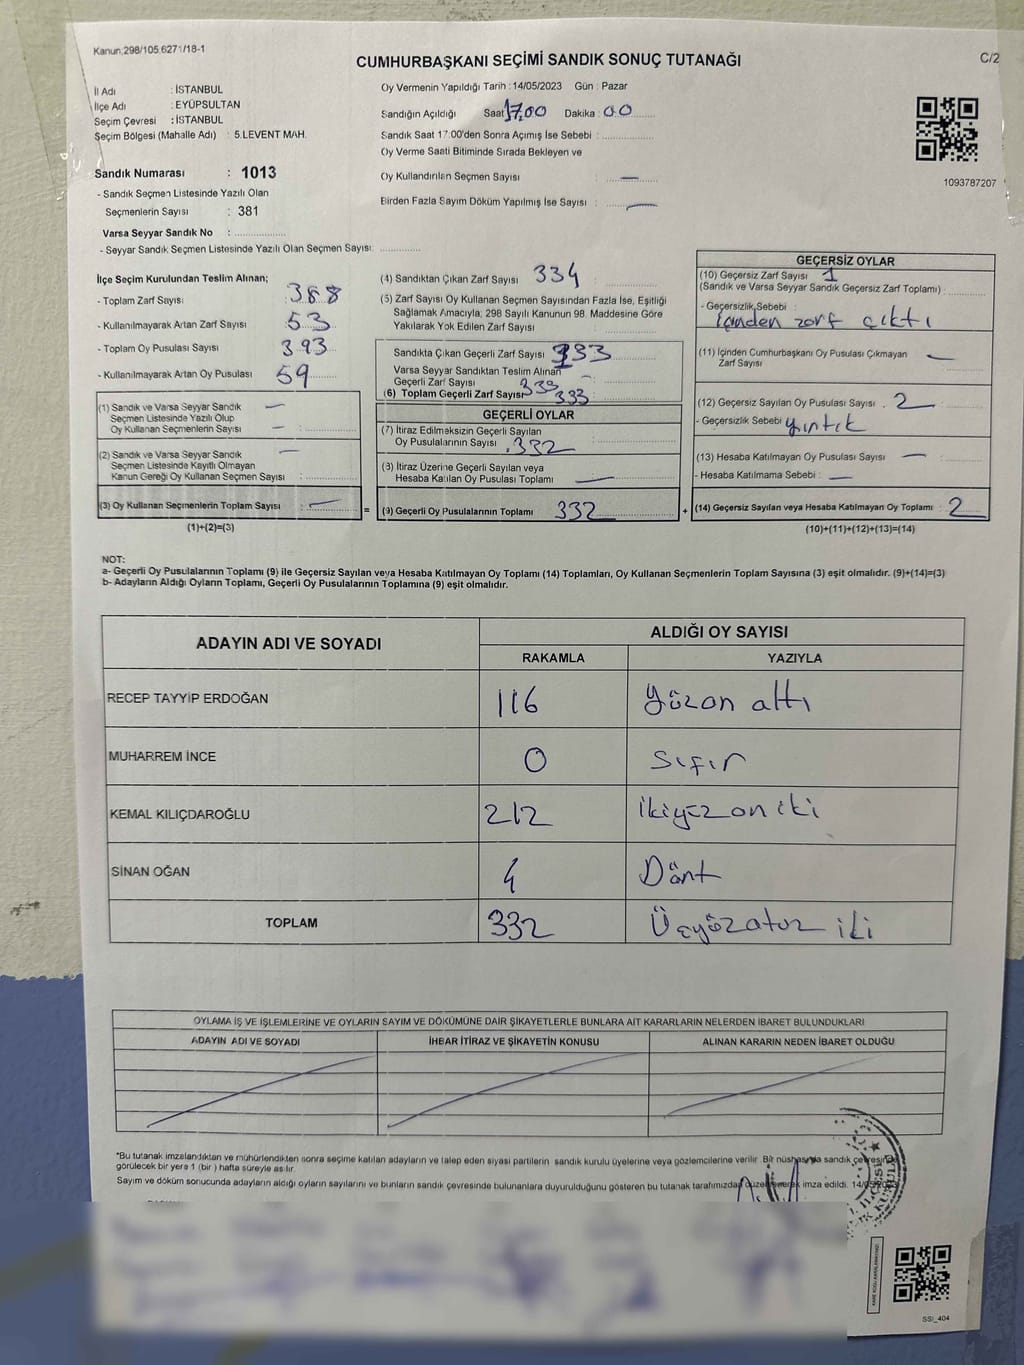 Kanun:298/105.6271/18-1
C/2
CUMHURBAŞKANI SEÇİMİ SANDIK SONUÇ TUTANAĞI
İl Adı : İSTANBUL
İlçe Adı : EYÜPSULTAN
Seçim Çevresi : İSTANBUL
Seçim Bölgesi (Mahalle Adı) : 5.LEVENT MAH.
Sandık Numarası : 1013
- Sandık Seçmen Listesinde Yazılı Olan
Seçmenlerin Sayısı : 381
Varsa Seyyar Sandık No :
- Seyyar Sandık Seçmen Listesinde Yazılı Olan Seçmen Sayısı:
Oy Vermenin Yapıldığı Tarih :14/05/2023 Gün : Pazar
Sandığın Açıldığı Saat 17.00 Dakika : 00
Sandık Saat 17:00'den Sonra Açımış İse Sebebi :
Oy Verme Saati Bitiminde Sırada Bekleyen ve
Oy Kullandırılan Seçmen Sayısı : —
Birden Fazla Sayım Döküm Yapılmış İse Sayısı : —
1093787207
İlçe Seçim Kurulundan Teslim Alınan;
- Toplam Zarf Sayısı 388
- Kullanılmayarak Artan Zarf Sayısı 53
- Toplam Oy Pusulası Sayısı 393
- Kullanılmayarak Artan Oy Pusulası 59
(1) Sandık ve Varsa Seyyar Sandık
Seçmen Listesinde Yazılı Olup
Oy Kullanan Seçmenlerin Sayısı : —
(2) Sandık ve Varsa Seyyar Sandık
Seçmen Listesinde Kayıtlı Olmayan
Kanun Gereği Oy Kullanan Seçmen Sayısı : —
(3) Oy Kullanan Seçmenlerin Toplam Sayısı : —
(1)+(2)=(3)
=
(4) Sandıktan Çıkan Zarf Sayısı 334
(5) Zarf Sayısı Oy Kullanan Seçmen Sayısından Fazla İse, Eşitliği
Sağlamak Amacıyla; 298 Sayılı Kanunun 98. Maddesine Göre
Yakılarak Yok Edilen Zarf Sayısı :
Sandıkta Çıkan Geçerli Zarf Sayısı : 333
Varsa Seyyar Sandıktan Teslim Alınan
Geçerli Zarf Sayısı : —
(6) Toplam Geçerli Zarf Sayısı: 333
GEÇERLİ OYLAR
(7) İtiraz Edilmeksizin Geçerli Sayılan
Oy Pusulalarının Sayısı : 332
(8) İtiraz Üzerine Geçerli Sayılan veya
Hesaba Katılan Oy Pusulası Toplamı : —
(9) Geçerli Oy Pusulalarının Toplamı 332
+
GEÇERSİZ OYLAR
(10) Geçersiz Zarf Sayısı 1
(Sandık ve Varsa Seyyar Sandık Geçersiz Zarf Toplamı) :
- Geçersizlik Sebebi :
İçinden zarf çıktı
(11) İçinden Cumhurbaşkanı Oy Pusulası Çıkmayan
Zarf Sayısı —
(12) Geçersiz Sayılan Oy Pusulası Sayısı . 2
- Geçersizlik Sebebi yırtık
(13) Hesaba Katılmayan Oy Pusulası Sayısı —
- Hesaba Katılmama Sebebi : —
(14) Geçersiz Sayılan veya Hesaba Katılmayan Oy Toplamı : 2
(10)+(11)+(12)+(13)=(14)
NOT:
a- Geçerli Oy Pusulalarının Toplamı (9) ile Geçersiz Sayılan veya Hesaba Katılmayan Oy Toplamı (14) Toplamları, Oy Kullanan Seçmenlerin Toplam Sayısına (3) eşit olmalıdır. (9)+(14)=(3)
b- Adayların Aldığı Oyların Toplamı, Geçerli Oy Pusulalarının Toplamına (9) eşit olmalıdır.
ADAYIN ADI VE SOYADI
ALDIĞI OY SAYISI
RAKAMLA YAZIYLA
RECEP TAYYİP ERDOĞAN 116 Yüzon altı
MUHARREM İNCE 0 Sıfır
KEMAL KILIÇDAROĞLU 212 İkiyüzon iki
SİNAN OĞAN 4 Dört
TOPLAM 332 Üçyüzotuz iki
OYLAMA İŞ VE İŞLEMLERİNE VE OYLARIN SAYIM VE DÖKÜMÜNE DAİR ŞİKAYETLERLE BUNLARA AİT KARARLARIN NELERDEN İBARET BULUNDUKLARI
ADAYIN ADI VE SOYADI İHBAR İTİRAZ VE ŞİKAYETİN KONUSU ALINAN KARARIN NEDEN İBARET OLDUĞU
*Bu tutanak imzalandıktan ve mühürlendikten sonra seçime katılan adayların ve talep eden siyasi partilerin sandık kurulu üyelerine veya gözlemcilerine verilir. Bir nüshası da sandık çevresinde
görülecek bir yere 1 (bir) hafta süreyle asılır.
Sayım ve döküm sonucunda adayların aldığı oyların sayılarını ve bunların sandık çevresinde bulunanlara duyurulduğunu gösteren bu tutanak tarafımızdan düzenlenerek imza edildi. 14/05/
SSI_404